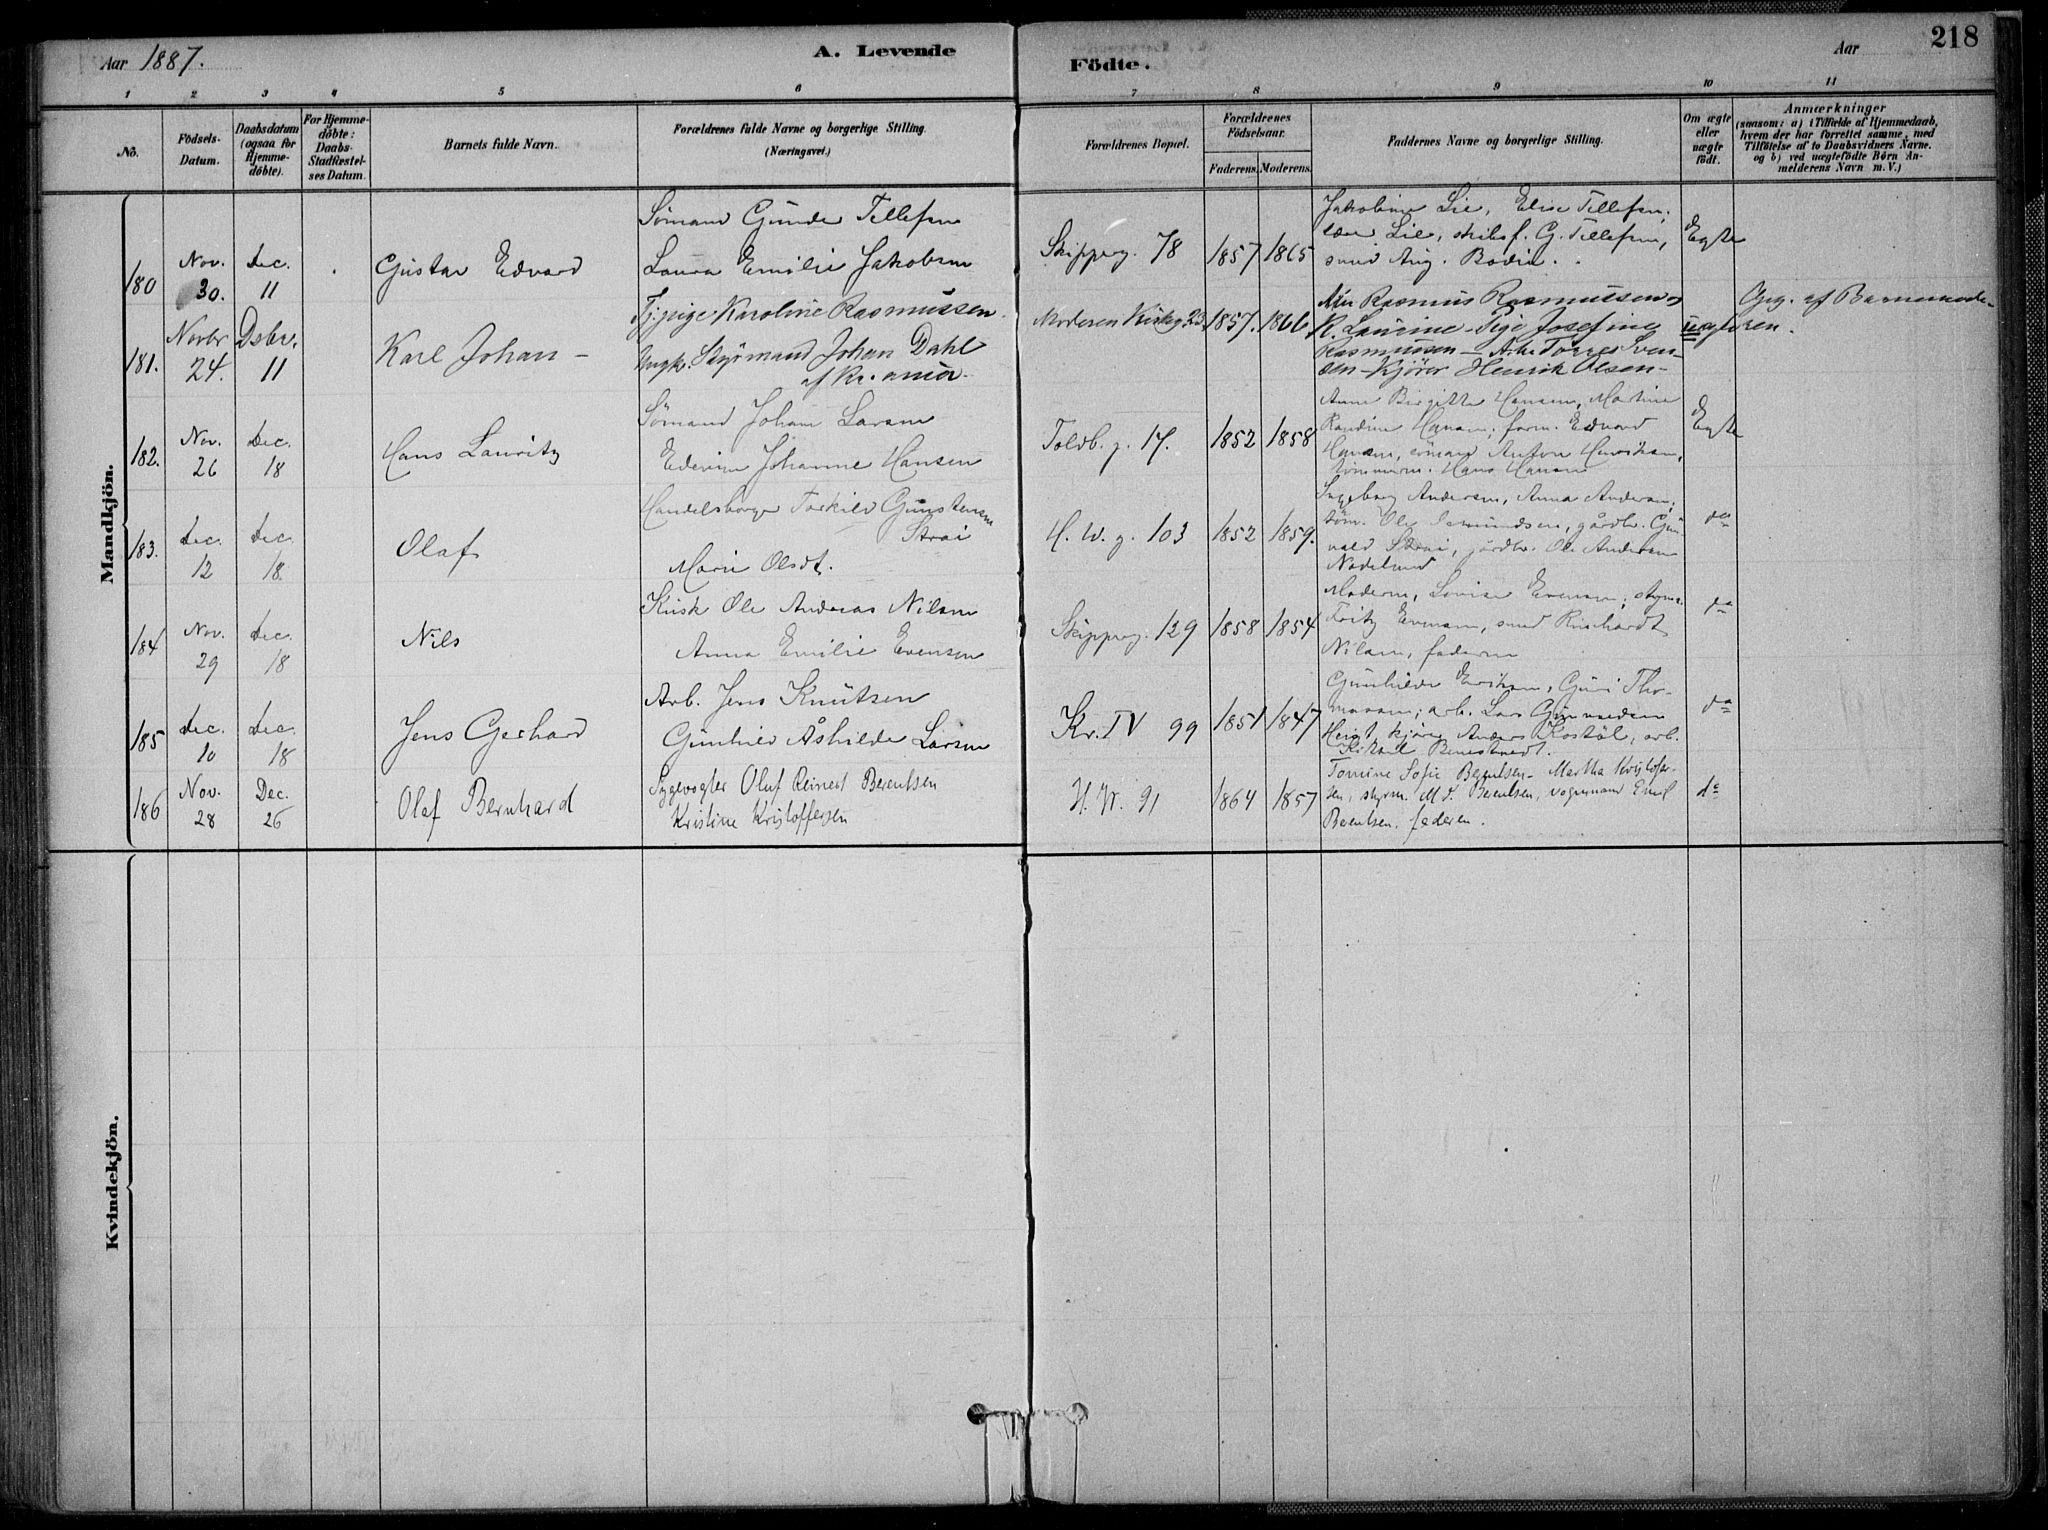 Aar 1887.
A. Levende
Födte.
Aar
218
1 2 3 4 5 6 7 8 9 10 11
No.
Födsels-Datum.
Daabsdatum (ogsaa for Hjemmedöbte).
For Hjemmedöbte: Daabs-Stadfæstelses Datum.
Barnets fulde Navn.
Forældrenes fulde Navne og borgerlige Stilling.
(Næringsvei.)
Forældrenes Bopæl.
Forældrenes Födselsaar.
Faderens. Moderens.
Faddernes Navne og borgerlige Stilling.
Om ægte eller uægte födt.
Anmærkninger
(saasom: a) i Tilfælde af Hjemmedaab,
hvem der har forrettet samme, med
Tilföielse af to Daabsvidners Navne.
og b) ved uægtefödte Börn Anmelderens Navn m. V.)
Mandkjön.
180 Nov. 30. Dec. 11 Gustav Edvard
Sømand Gunde Tellefsen
Laura Emilie Jakobsen
Skipperg. 78 1857 1865
Jakobine Lie, Elise Tellefsen;
Lie, skibsf. G. Tellefsen,
smed Aug. Bodin.
Egte
181. Novbr 24. Dsbr. 11 Karl Johan
Tj.pige Karoline Rasmussen
Ungk. Styrmand Johan Dahl
af
Moderen Kirkeg 23. 1857. 1866
Rasmus Rasmussen og
K. Laurine - Pige Josefine
Rasmussen - Arb. Torres Svensen - Kjører Henrik Olsen -
uægte
Opg. af Barnemoderen.
182. Nov. 26 Dec. 18 Hans Lauritz
Sømand Johan Larsen
Edevine Johanne Hansen
Toldb. g. 17. 1852 1858
Anne Birgitte Hansen, Martine
Randine Hansen; form. Edvard
Hansen, sömand Anton Henriksen,
tömmerm. Hans Hansen
Egte
183. Dec. 12 Dec. 18. Olaf
Handelsborger Torkild Gunstensen
Strai
Marie Olsdt.
H. W. g. 103 1852 1859.
Ingeborg Andersen, Anna Andersen;
töm. Ole Asmundsen, gårdbr. Gunvald Strai, gårdbr. Ole Andersen
Nodeland
do
184 Nov. 29 Dec. 18 Nils
Kusk Ole Andreas Nilsen
Anna Emilie Evensen
Skipperg. 129 1858 1854
Moderen, Lovise Evensen;
Fritz Evensen, smed Reinhardt
Nilsen, faderen
do
185 Dec. 10 Dec. 18 Jens Gerhard
Arb. Jens Knutsen
Gunhild Åshilde Larsen
Kr. IV 99 1851 1847
Gunhilde Eriksen, Guri Thomassen; arb. Lars Gunvaldsen
kjörer Anders Kostöl, arb.
Benestvedt.
do
186 Nov. 28 Dec. 26 Olaf Bernhard
Sygevogter Oluf Reinert Berentsen
Kristine Kristoffersen
H. W. 91 1864 1857
Tomine Sofie Berentsen - Martha Kristofersen, styrm. M. F. Berentsen, vognmand Emil
Berentsen, faderen.
do
Kvindekjön.